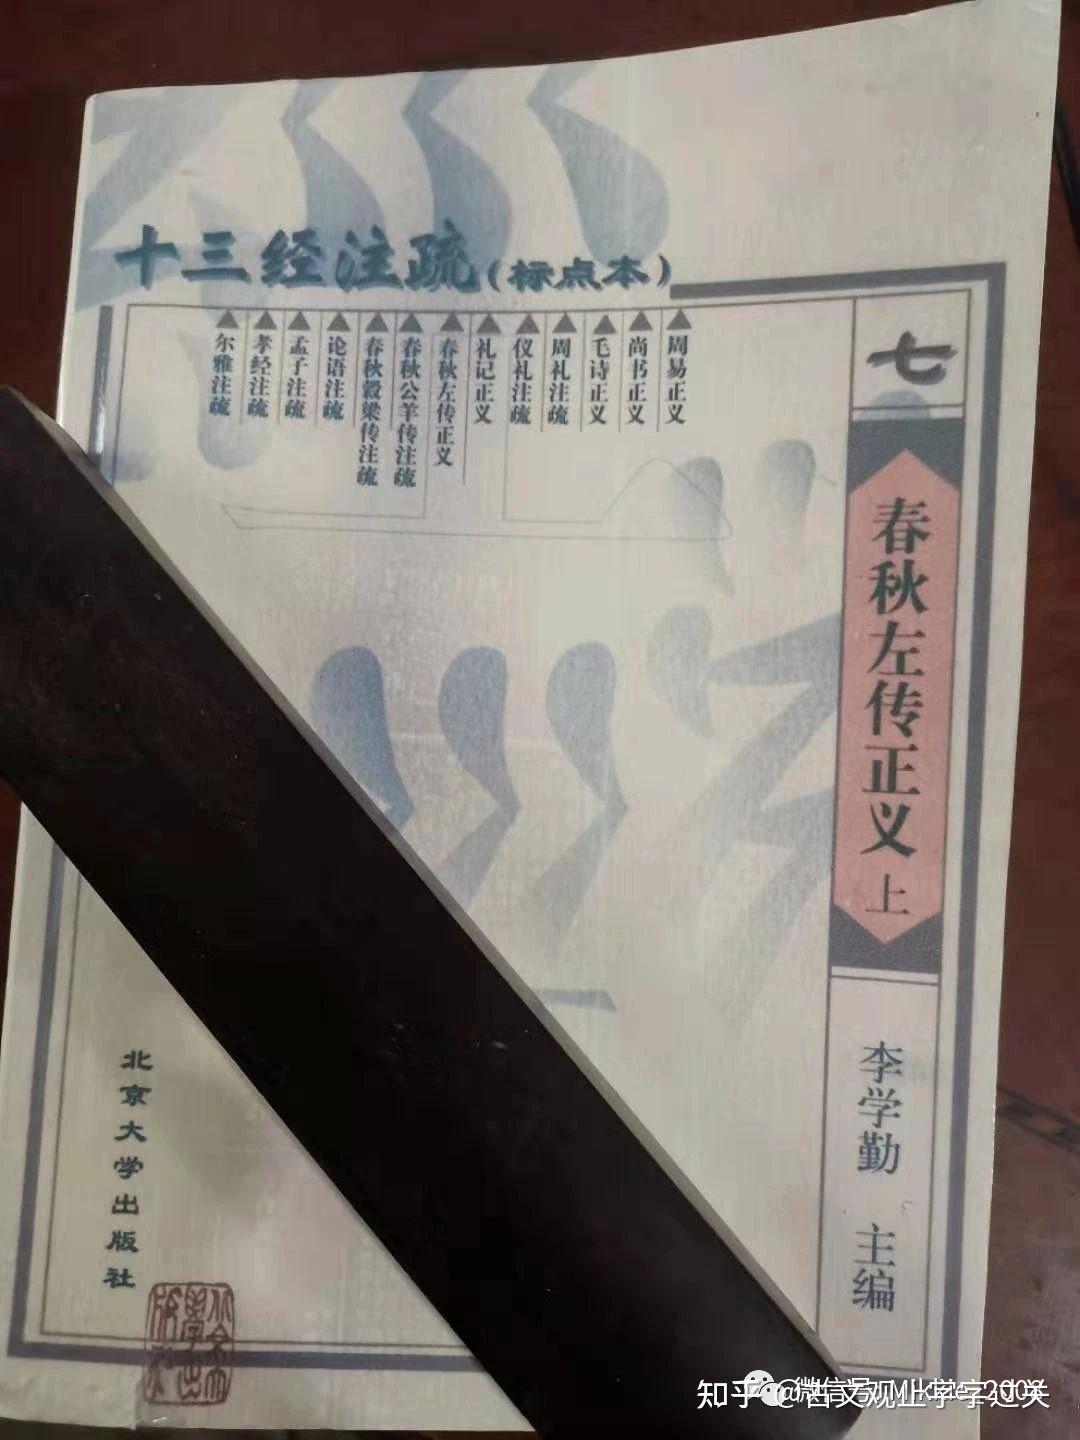 十三经注疏(标点本)
七
春秋左传正义 上
李学勤 主编
周易正义
尚书正义
毛诗正义
周礼注疏
仪礼注疏
礼记正义
春秋左传正义
春秋公羊传注疏
春秋穀梁传注疏
论语注疏
孟子注疏
孝经注疏
尔雅注疏
北京大学出版社
知乎 @古文观止字字过关